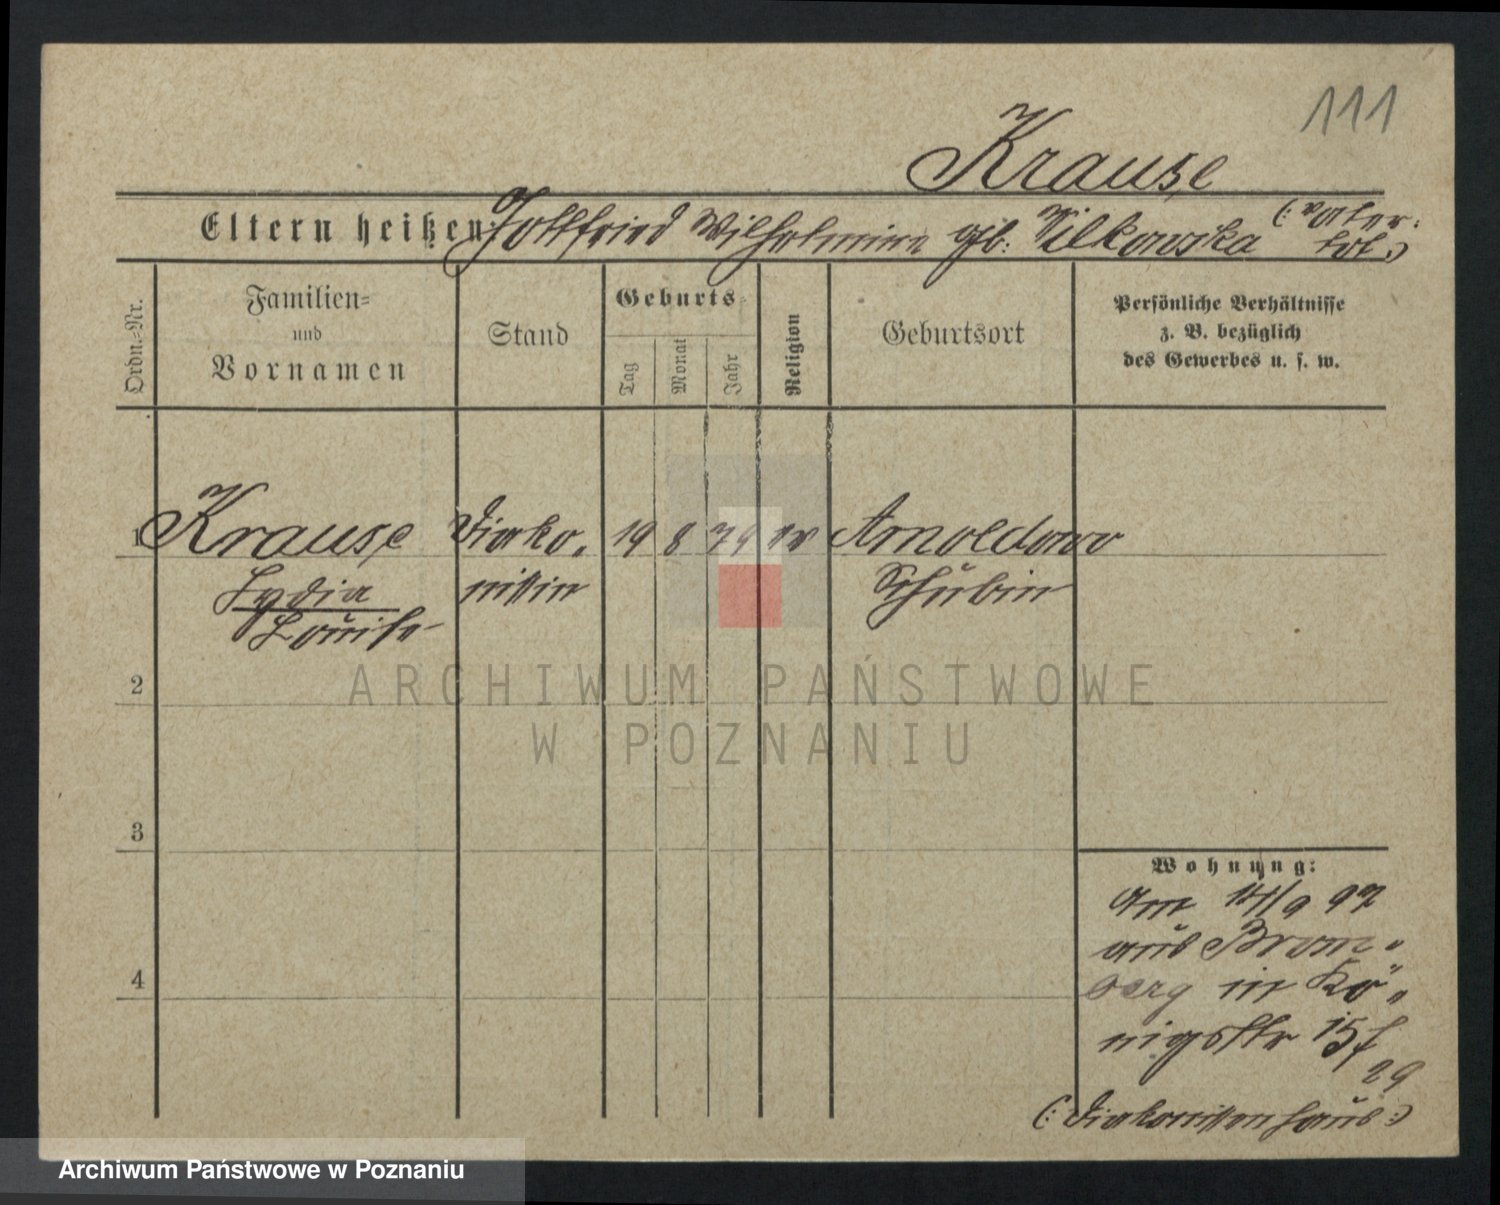 111
Krause
Eltern heißen: Gottfried Wilhelmine geb: Wilkowska (: Vater
tot :)
Ordn.=Nr.
Familien=
und
Vornamen
Stand
Geburts=
Tag
Monat
Jahr
Religion
Geburtsort
Persönliche Verhältnisse
z. B. bezüglich
des Gewerbes u. s. w.
1 Krause Diako= 19 8 79 ev Arnoldowo
Lydia nissin Schubin
Louise
2
ARCHIWUM PAŃSTWOWE
W POZNANIU
3
4
Wohnung:
Am 14/9 97
aus Brom=
berg in Kö=
nigsstr 15
29
(: Diakonissenhaus :)
Archiwum Państwowe w Poznaniu